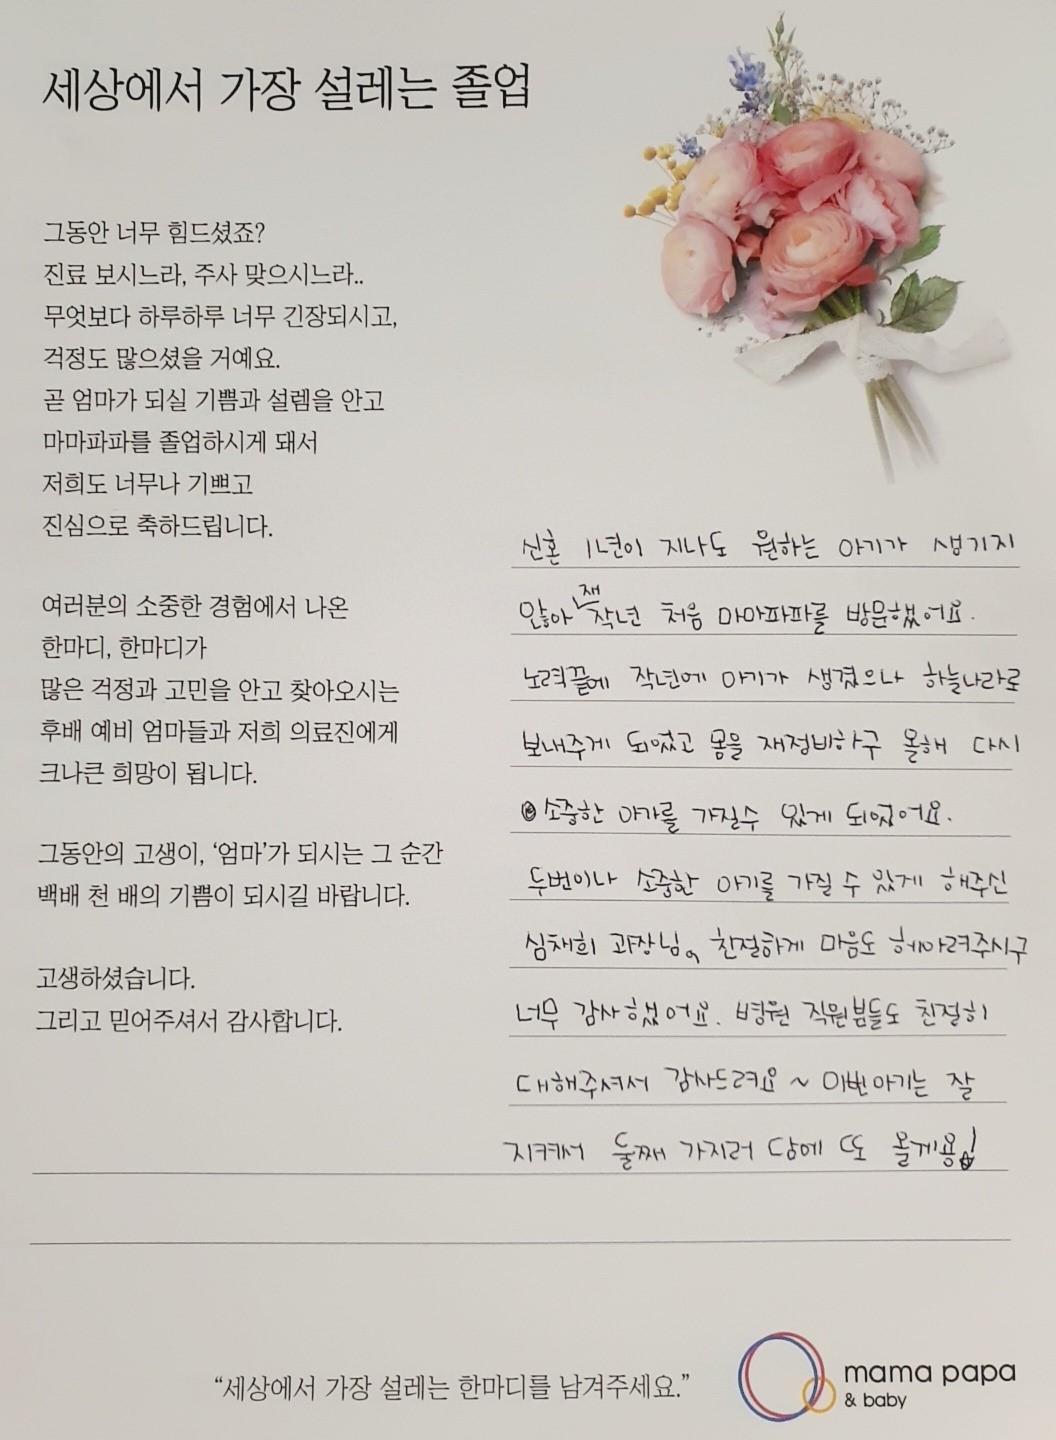 세상에서 가장 설레는 졸업
그동안 너무 힘드셨죠?
진료 보시느라, 주사 맞으시느라..
무엇보다 하루하루 너무 긴장되시고,
걱정도 많으셨을 거예요.
곧 엄마가 되실 기쁨과 설렘을 안고
마마파파를 졸업하시게 돼서
저희도 너무나 기쁘고
진심으로 축하드립니다.
여러분의 소중한 경험에서 나온
한마디, 한마디가
많은 걱정과 고민을 안고 찾아오시는
후배 예비 엄마들과 저희 의료진에게
크나큰 희망이 됩니다.
그동안의 고생이, ‘엄마’가 되시는 그 순간
백배 천 배의 기쁨이 되시길 바랍니다.
고생하셨습니다.
그리고 믿어주셔서 감사합니다.
신혼 1년이 지나도 원하는 아기가 생기지
않아 재작년 처음 마마파파를 방문했어요.
노력끝에 작년에 아기가 생겼으나 하늘나라로
보내주게 되었고 몸을 재정비하구 올해 다시
소중한 아가를 가질수 있게 되었어요.
두번이나 소중한 아기를 가질 수 있게 해주신
심채희 과장님, 친절하게 마음도 헤아려주시구
너무 감사했어요. 병원 직원분들도 친절히
대해주셔서 감사드려요 ~ 이번아기는 잘
지켜서 둘째 가지러 담에 또 올게용!
“세상에서 가장 설레는 한마디를 남겨주세요.”
mama papa
& baby